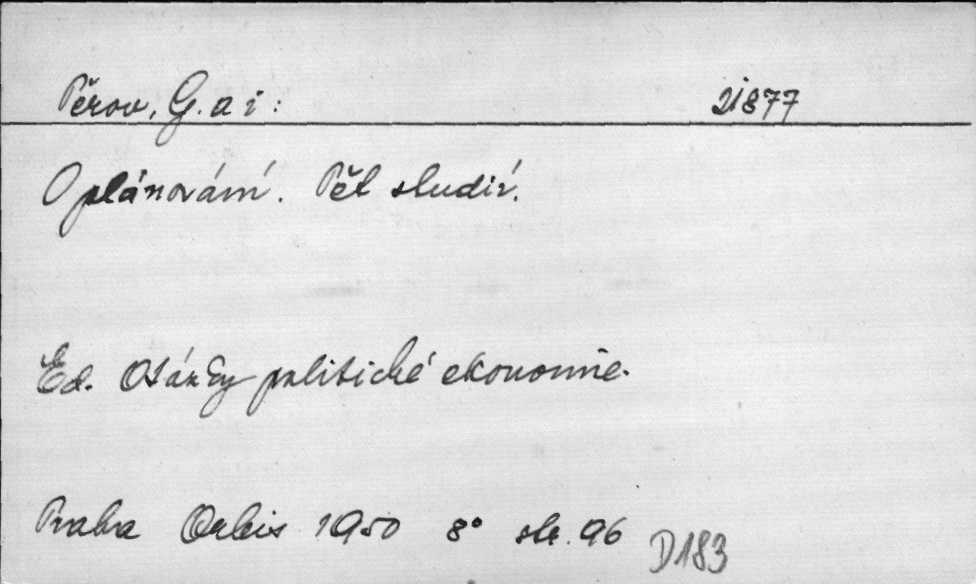 Pěrov, G. a i: 21877
O plánování. Pět studií.
Ed. Otázky politické ekonomie.
Praha Orbis 1950 8° str. 96 D183